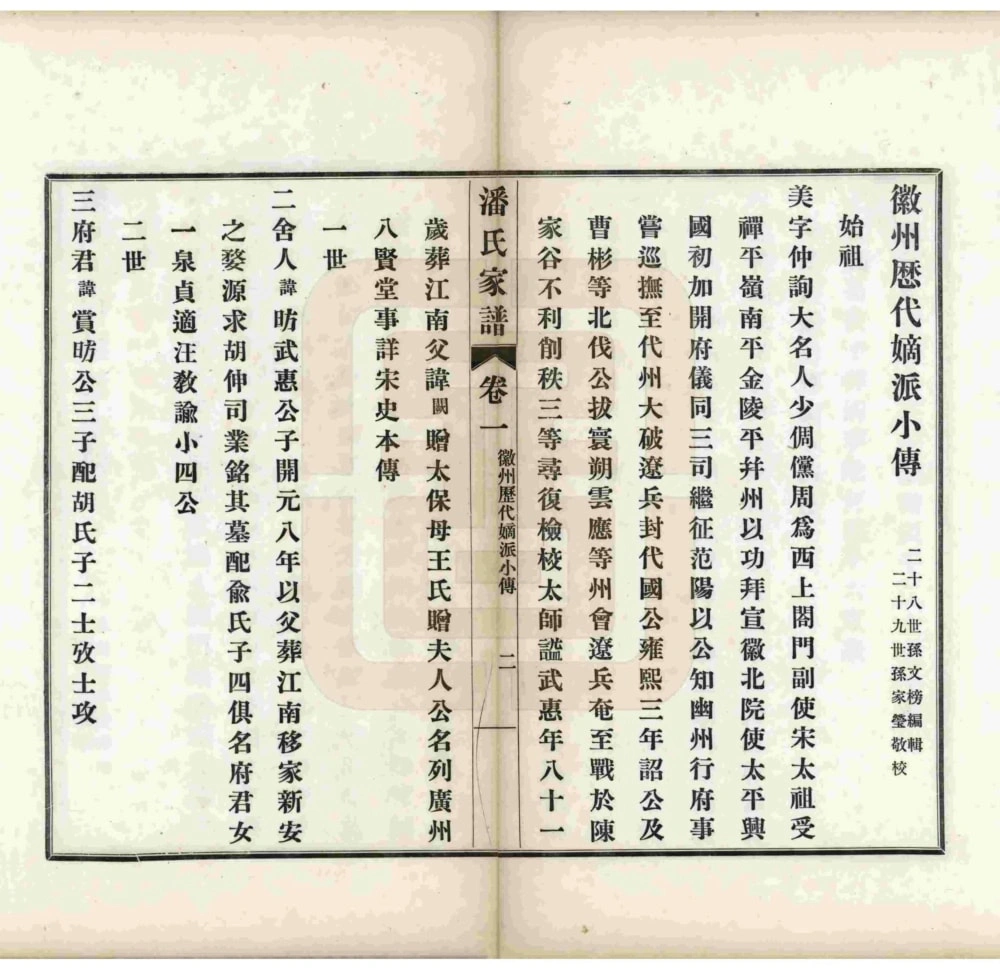 徽州歷代嫡派小傳
二十八世孫文榜編輯
二十九世孫家瑩敬校
始祖
美字仲詢大名人少倜儻周爲西上閤門副使宋太祖受
禪平嶺南平金陵平幷州以功拜宣徽北院使太平興
國初加開府儀同三司繼征范陽以公知幽州行府事
嘗巡撫至代州大破遼兵封代國公雍熙三年詔公及
曹彬等北伐公拔寰朔雲應等州會遼兵奄至戰於陳
家谷不利削秩三等尋復檢校太師諡武惠年八十一
潘氏家譜
卷一
徽州歷代嫡派小傳
二
歲葬江南父諱闕贈太保母王氏贈夫人公名列廣州
八賢堂事詳宋史本傳
一世
二舍人諱昉武惠公子開元八年以父葬江南移家新安
之婺源求胡伸司業銘其墓配兪氏子四俱名府君女
一泉貞適汪敎諭小四公
二世
三府君諱賞昉公三子配胡氏子二士攷士攻